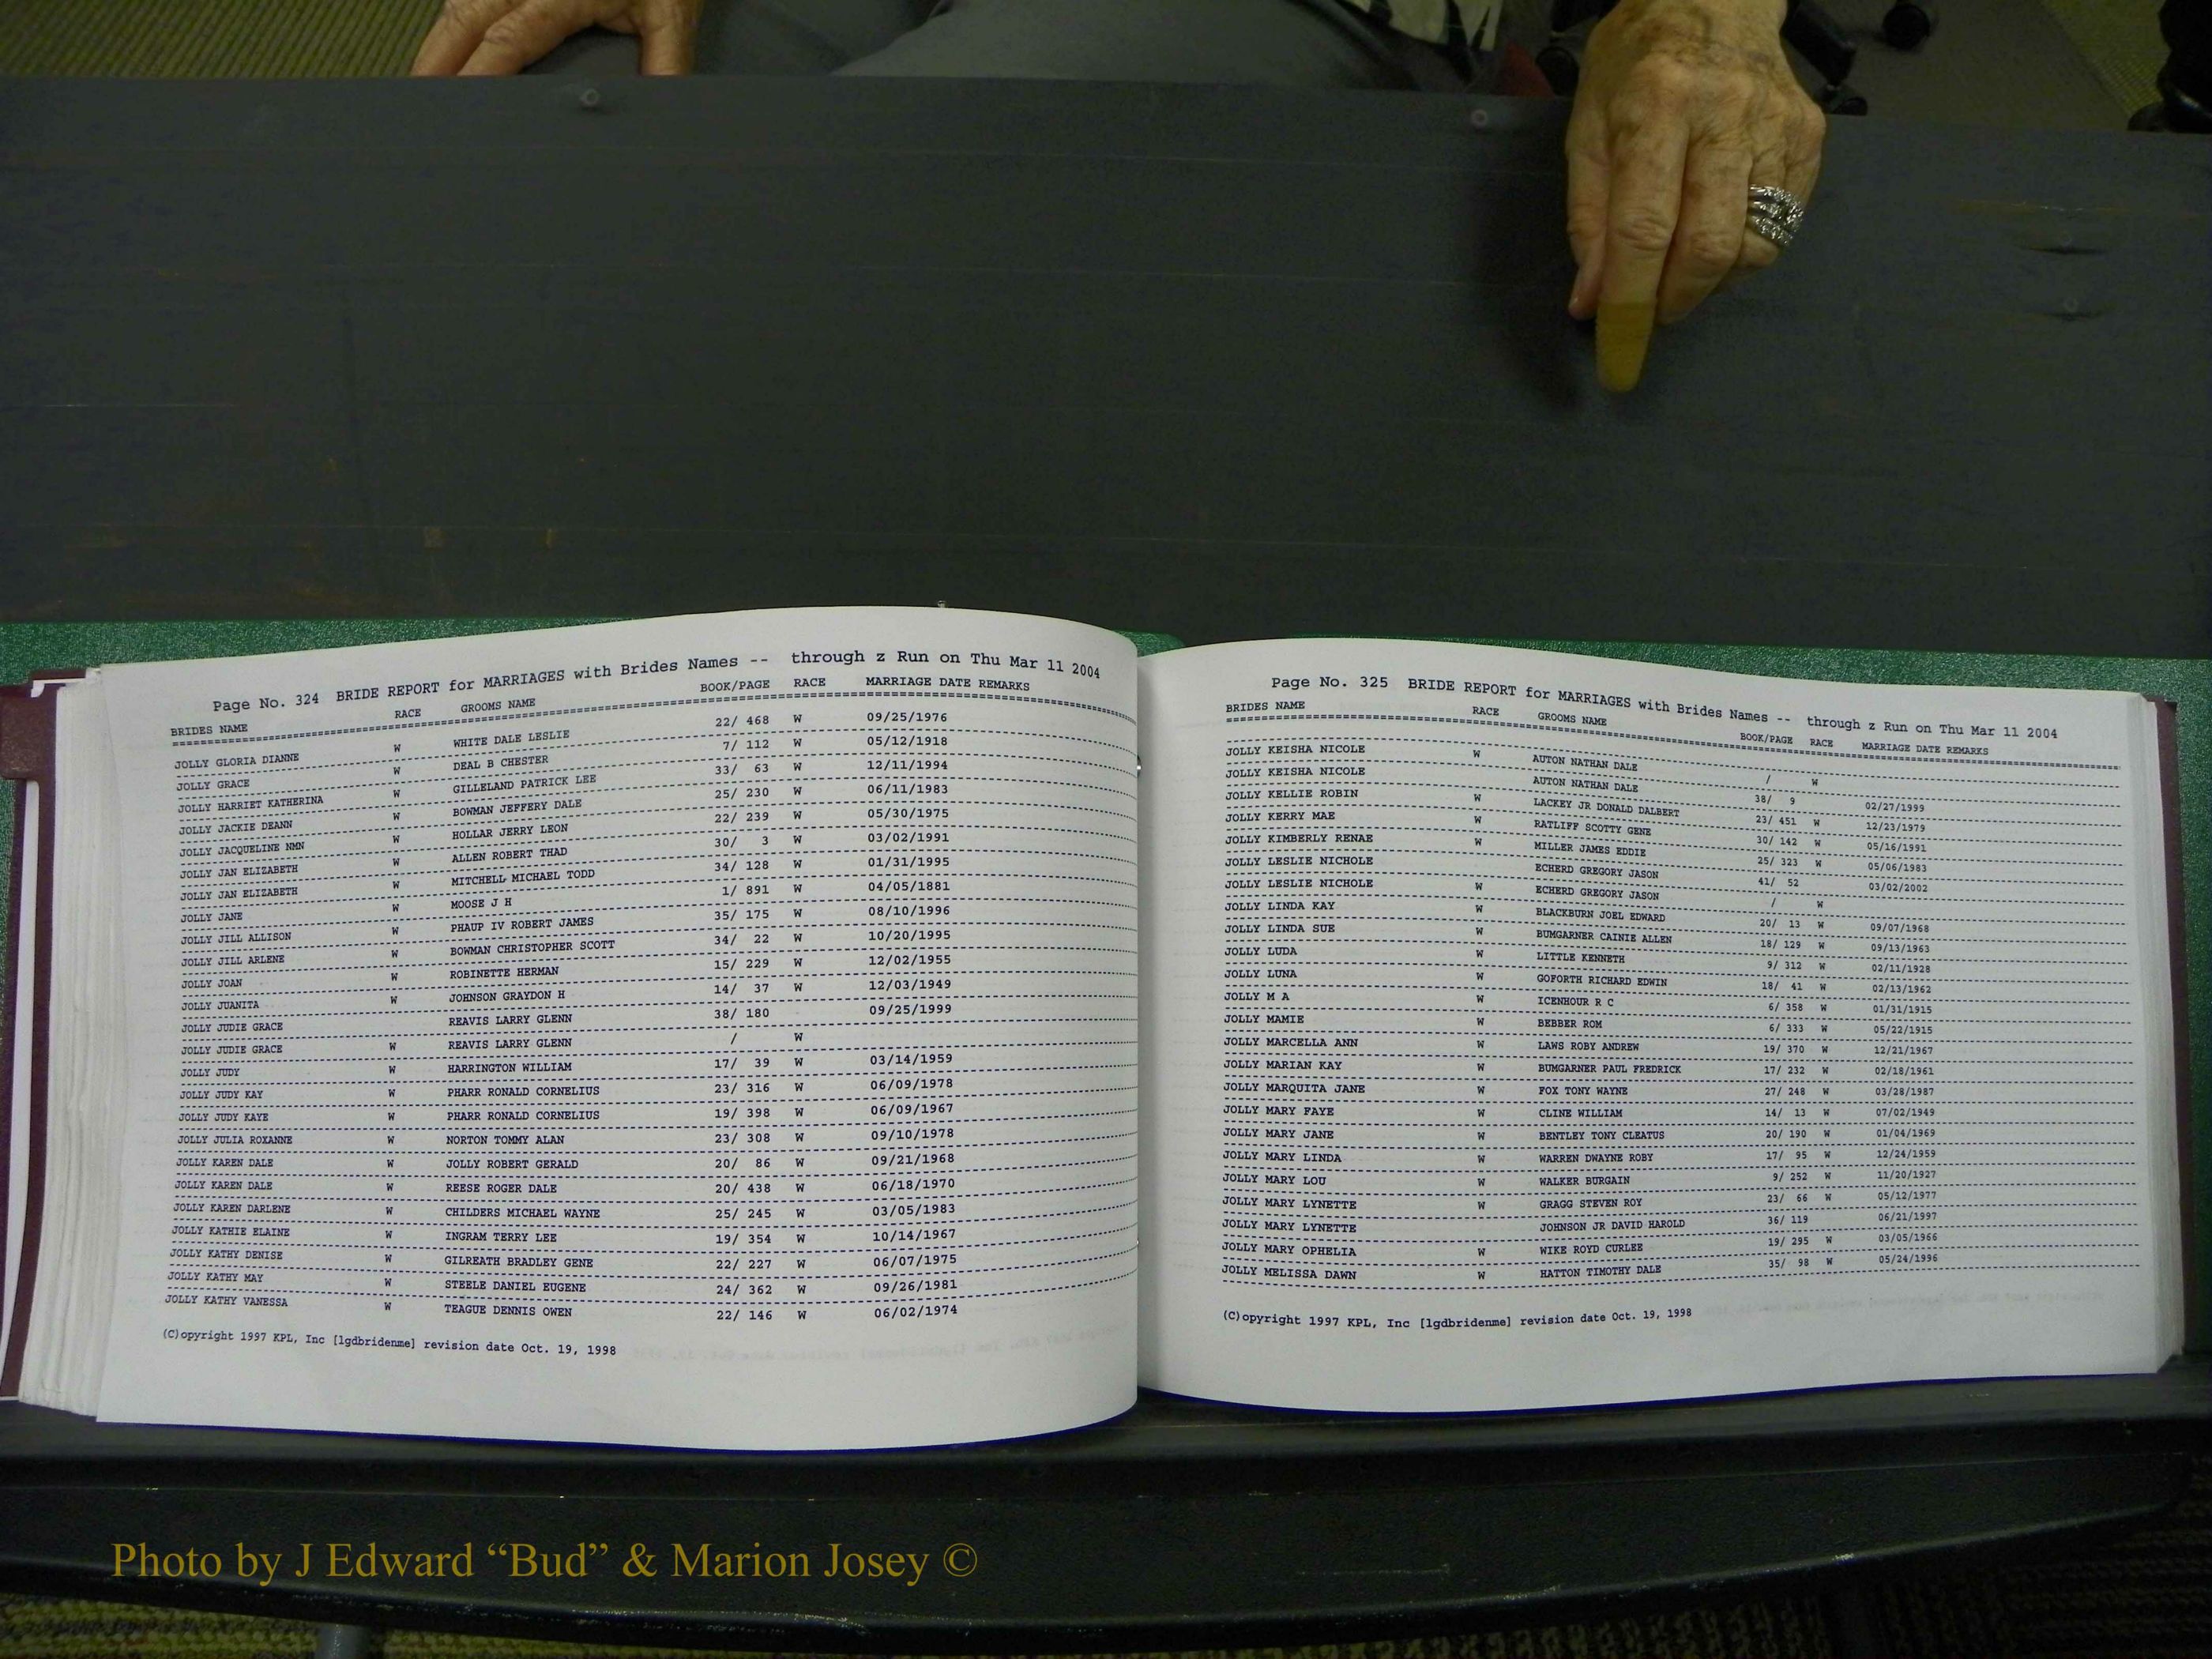 Page No. 324 BRIDE REPORT for MARRIAGES with Brides Names -- through z Run on Thu Mar 11 2004
BRIDES NAME RACE GROOMS NAME BOOK/PAGE RACE MARRIAGE DATE REMARKS
JOLLY GLORIA DIANNE W WHITE DALE LESLIE 22/ 468 W 09/25/1976
JOLLY GRACE W DEAL B CHESTER 7/ 112 W 05/12/1918
JOLLY HARRIET KATHERINA W GILLELAND PATRICK LEE 33/ 63 W 12/11/1994
JOLLY JACKIE DEANN W BOWMAN JEFFERY DALE 25/ 230 W 06/11/1983
JOLLY JACQUELINE NMN W HOLLAR JERRY LEON 22/ 239 W 05/30/1975
JOLLY JAN ELIZABETH W ALLEN ROBERT THAD 30/ 3 W 03/02/1991
JOLLY JAN ELIZABETH W MITCHELL MICHAEL TODD 34/ 128 W 01/31/1995
JOLLY JANE W MOOSE J H 1/ 891 W 04/05/1881
JOLLY JILL ALLISON W PHAUP IV ROBERT JAMES 35/ 175 W 08/10/1996
JOLLY JILL ARLENE W BOWMAN CHRISTOPHER SCOTT 34/ 22 W 10/20/1995
JOLLY JOAN W ROBINETTE HERMAN 15/ 229 W 12/02/1955
JOLLY JUANITA W JOHNSON GRAYDON H 14/ 37 W 12/03/1949
JOLLY JUDIE GRACE REAVIS LARRY GLENN 38/ 180 09/25/1999
JOLLY JUDIE GRACE W REAVIS LARRY GLENN / W
JOLLY JUDY W HARRINGTON WILLIAM 17/ 39 W 03/14/1959
JOLLY JUDY KAY W PHARR RONALD CORNELIUS 23/ 316 W 06/09/1978
JOLLY JUDY KAYE W PHARR RONALD CORNELIUS 19/ 398 W 06/09/1967
JOLLY JULIA ROXANNE W NORTON TOMMY ALAN 23/ 308 W 09/10/1978
JOLLY KAREN DALE W JOLLY ROBERT GERALD 20/ 86 W 09/21/1968
JOLLY KAREN DALE W REESE ROGER DALE 20/ 438 W 06/18/1970
JOLLY KAREN DARLENE W CHILDERS MICHAEL WAYNE 25/ 245 W 03/05/1983
JOLLY KATHIE ELAINE W INGRAM TERRY LEE 19/ 354 W 10/14/1967
JOLLY KATHY DENISE W GILREATH BRADLEY GENE 22/ 227 W 06/07/1975
JOLLY KATHY MAY W STEELE DANIEL EUGENE 24/ 362 W 09/26/1981
JOLLY KATHY VANESSA W TEAGUE DENNIS OWEN 22/ 146 W 06/02/1974
(C)opyright 1997 KPL, Inc [lgdbridenme] revision date Oct. 19, 1998
Page No. 325 BRIDE REPORT for MARRIAGES with Brides Names -- through z Run on Thu Mar 11 2004
BRIDES NAME RACE GROOMS NAME BOOK/PAGE RACE MARRIAGE DATE REMARKS
JOLLY KEISHA NICOLE W AUTON NATHAN DALE / W
JOLLY KEISHA NICOLE AUTON NATHAN DALE 38/ 9 02/27/1999
JOLLY KELLIE ROBIN W LACKEY JR DONALD DALBERT 23/ 451 W 12/23/1979
JOLLY KERRY MAE W RATLIFF SCOTTY GENE 30/ 142 W 05/16/1991
JOLLY KIMBERLY RENAE W MILLER JAMES EDDIE 25/ 323 W 05/06/1983
JOLLY LESLIE NICHOLE ECHERD GREGORY JASON 41/ 52 03/02/2002
JOLLY LESLIE NICHOLE W ECHERD GREGORY JASON / W
JOLLY LINDA KAY W BLACKBURN JOEL EDWARD 20/ 13 W 09/07/1968
JOLLY LINDA SUE W BUMGARNER CAINIE ALLEN 18/ 129 W 09/13/1963
JOLLY LUDA W LITTLE KENNETH 9/ 312 W 02/11/1928
JOLLY LUNA W GOFORTH RICHARD EDWIN 18/ 41 W 02/13/1962
JOLLY M A W ICENHOUR R C 6/ 358 W 01/31/1915
JOLLY MAMIE W BEBBER ROM 6/ 333 W 05/22/1915
JOLLY MARCELLA ANN W LAWS ROBY ANDREW 19/ 370 W 12/21/1967
JOLLY MARIAN KAY W BUMGARNER PAUL FREDRICK 17/ 232 W 02/18/1961
JOLLY MARQUITA JANE W FOX TONY WAYNE 27/ 248 W 03/28/1987
JOLLY MARY FAYE W CLINE WILLIAM 14/ 13 W 07/02/1949
JOLLY MARY JANE W BENTLEY TONY CLEATUS 20/ 190 W 01/04/1969
JOLLY MARY LINDA W WARREN DWAYNE ROBY 17/ 95 W 12/24/1959
JOLLY MARY LOU W WALKER BURGAIN 9/ 252 W 11/20/1927
JOLLY MARY LYNETTE W GRAGG STEVEN ROY 23/ 66 W 05/12/1977
JOLLY MARY LYNETTE JOHNSON JR DAVID HAROLD 36/ 119 06/21/1997
JOLLY MARY OPHELIA W WIKE ROYD CURLEE 19/ 295 W 03/05/1966
JOLLY MELISSA DAWN W HATTON TIMOTHY DALE 35/ 98 W 05/24/1996
(C)opyright 1997 KPL, Inc [lgdbridenme] revision date Oct. 19, 1998
Photo by J Edward “Bud” & Marion Josey ©